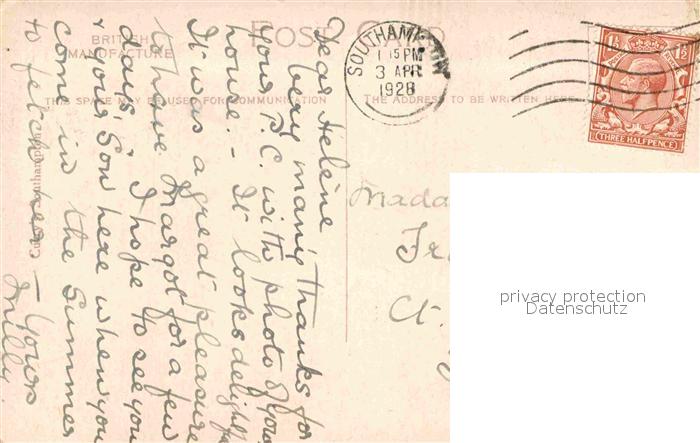 POST CARD
BRITISH
MANUFACTURE
THIS SPACE MAY BE USED FOR COMMUNICATION
THE ADDRESS TO BE WRITTEN HERE
SOUTHAMPTON
1 15 PM
3 APR
1928
THREE HALFPENCE
Dear Hélène
Very many thanks for
your P.C. with photo of your
house. - It looks delightful
It was a great pleasure
to have Margot for a few
days, I hope to see you
& your Son here when you
come in the Summer
to fetch her - Yours
Milly.
Southampton
Mada
privacy protection
Datenschutz